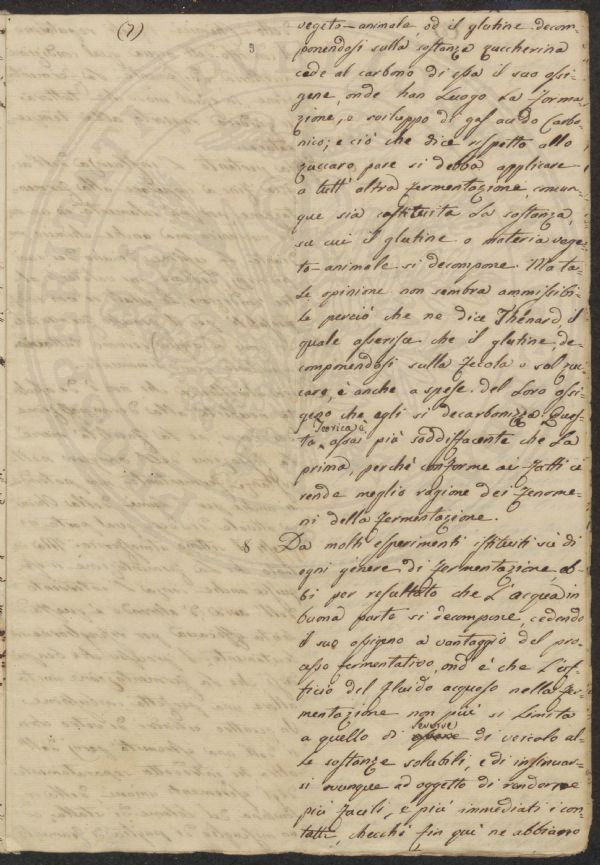 (7)
vegeto-animale, od il glutine decom-
ponendosi sulla sostanza zuccherina
cede al carbono di essa il suo ossi-
gene, onde han Luogo La forma-
zione, e sviluppo di gas acido Carbo-
nico; e ciò che dice rispetto allo
zuccaro, pare si debba applicare
a tutt' altra fermentazione, comun-
que sia costituita La sostanza,
su cui il glutine o materia vege-
to-animale si decompone. Ma ta-
le opinione non sembra ammissibi-
le perciò che ne dice Thénard, il
quale asserisce che il glutine, de-
componendosi sulla Fecola o sul zuc-
caro, è anche a spese del Loro ossi-
geno che egli si decarbonizza. Ques-
teorica è
ta assai più soddisfacente che La
prima, perchè conforme ai fatti ci
rende meglio ragione dei fenome-
ni della fermentazione.
8 Da molti esperimenti istituiti su di
ogni genere di fermentazione eb-
bi per resultato che L'acqua in
buona parte si decompone, cedendo
il suo ossigeno a vantaggio del pro-
cesso fermentativo, ond' è che L'uf-
ficio del fluido acquoso nella fer-
mentazione non più si Limita
servire
a quello di di veicolo al-
le sostanze solubili, e di insinuar-
si ovunque ad oggetto di renderne
più facili, e più immediati i con-
tatti, checchè fin quì ne abbiano